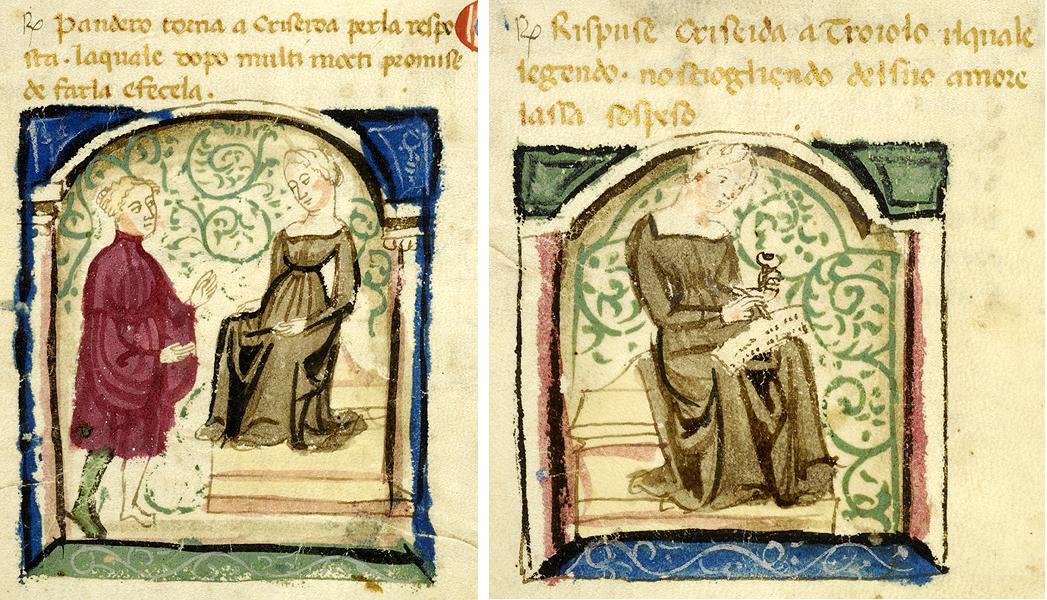 Rp Pandero torna a Criseida per la respo
sta. laquale dopo multi mocti promise
de farla efecela.
Rp Rispuse Criseida a Troiolo ilquale
legendo. no sciogliendo del suo amore
lassa sospeso